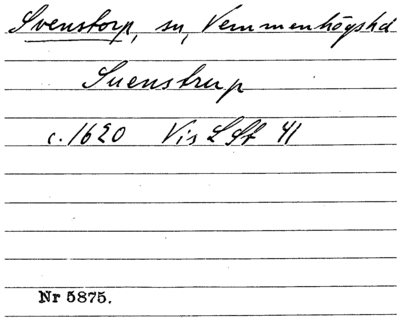 Svenstorp, sn, Vemmenhögshd
Suenstrup
c. 1620 Vis L St 41
Nr 5875.